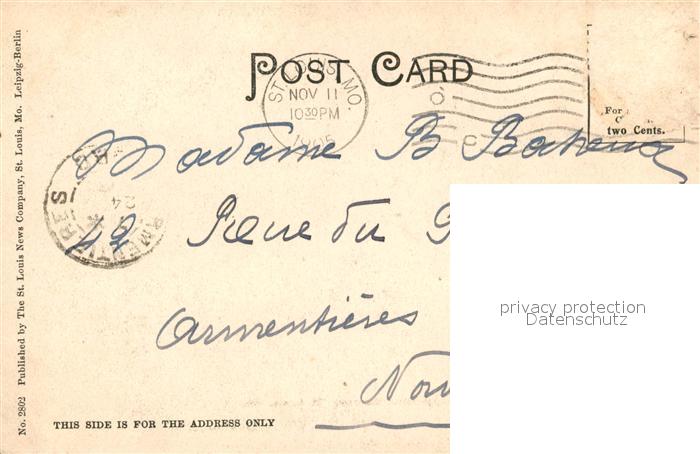 POST CARD
ST. LOUIS, MO.
NOV 11
1030 PM
For
two Cents.
Madame B
42 Rue du
Armentières
THIS SIDE IS FOR THE ADDRESS ONLY
No. 2802 Published by The St. Louis News Company, St. Louis, Mo. Leipzig-Berlin
privacy protection
Datenschutz